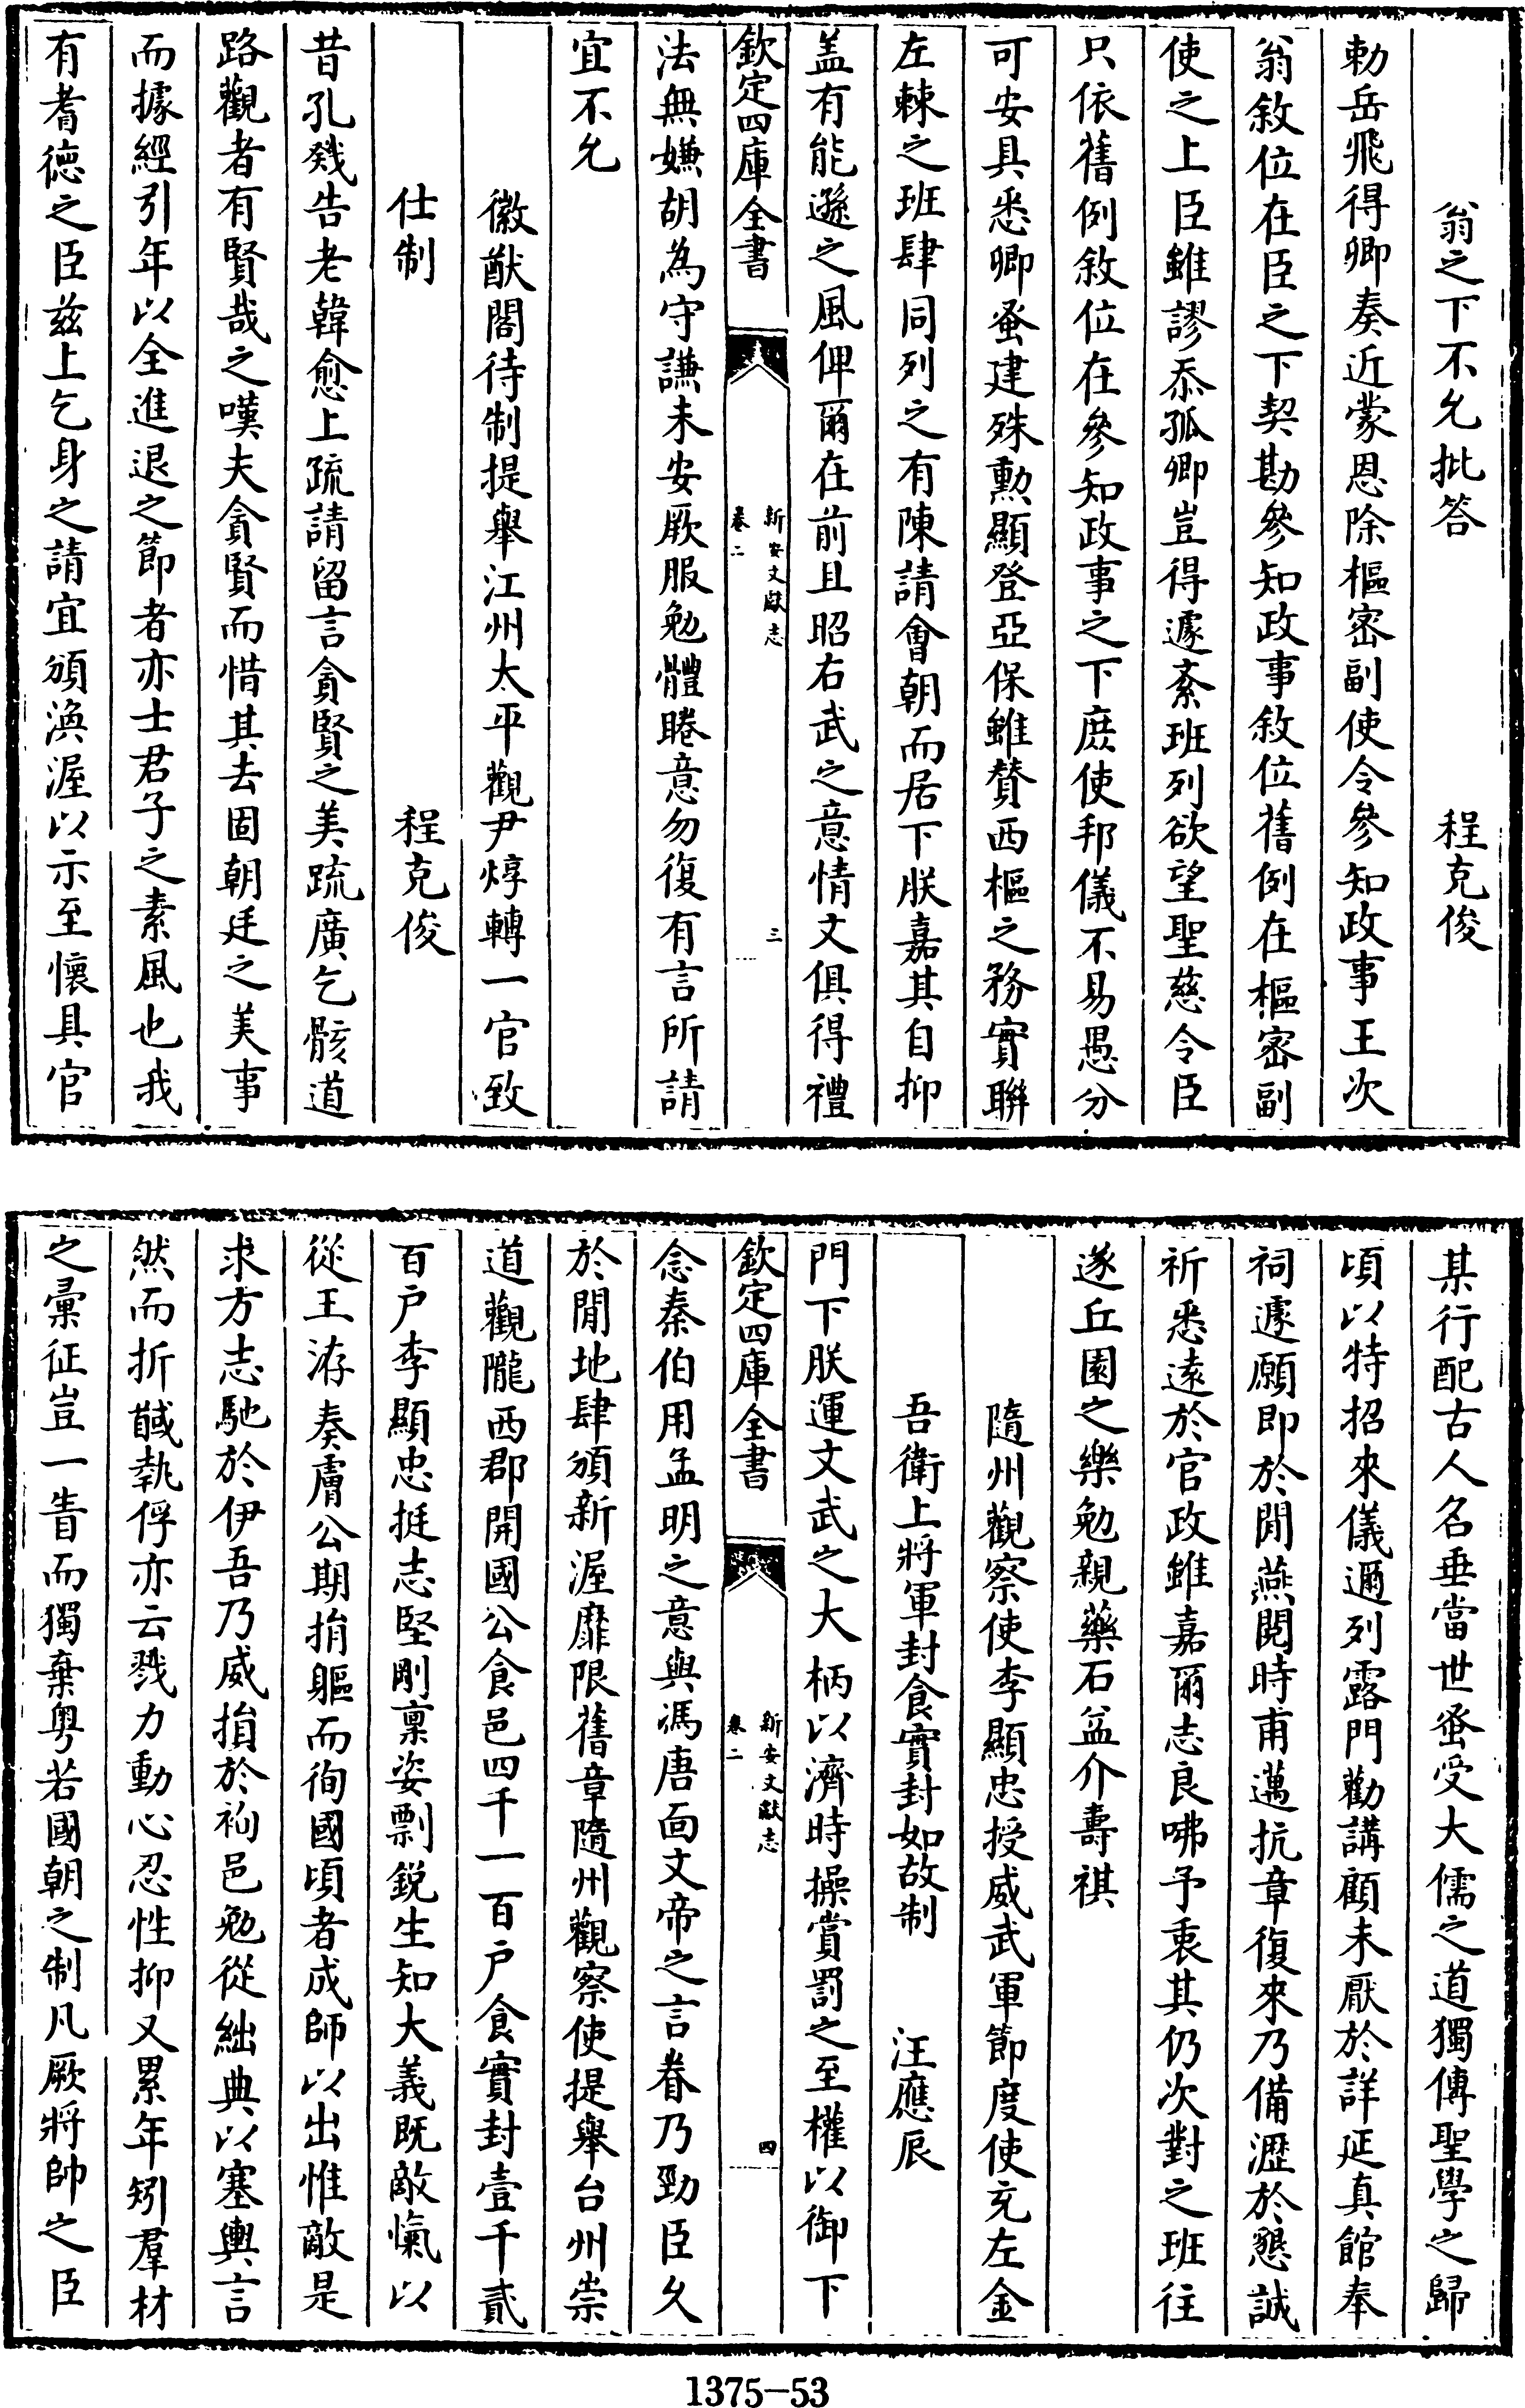 翁之下不允批答　程克俊
勅岳飛得卿奏近蒙恩除樞密副使令參知政事王次
翁敘位在臣之下契勘參知政事敘位舊例在樞密副
使之上臣雖謬忝孤卿豈得遽紊班列欲望聖慈令臣
只依舊例敘位在參知政事之下庶使邦儀不易愚分
可安具悉卿蚤建殊勲顯登亞保雖賛西樞之務實聯
左棘之班肆同列之有陳請會朝而居下朕嘉其自抑
盖有能遜之風俾爾在前且昭右武之意情文俱得禮
欽定四庫全書
新安文獻志
卷二
三
法無嫌胡為守謙未安厥服勉體睠意勿復有言所請
宜不允
徽猷閣待制提舉江州太平觀尹焞轉一官致
仕制　程克俊
昔孔戣告老韓愈上疏請留言貪賢之美疏廣乞骸道
路觀者有賢哉之嘆夫貪賢而惜其去固朝廷之美事
而據經引年以全進退之節者亦士君子之素風也我
有耆德之臣兹上乞身之請宜頒渙渥以示至懷具官
某行配古人名垂當世蚤受大儒之道獨傳聖學之歸
頃以特招來儀邇列露門勸講顧未厭於詳延真館奉
祠遽願即於閒燕閱時甫邁抗章復來乃備瀝於懇誠
祈悉遠於官政雖嘉爾志良咈予衷其仍次對之班往
遂丘園之樂勉親藥石益介壽祺
隨州觀察使李顯忠授威武軍節度使充左金
吾衛上將軍封食實封如故制　汪應辰
門下朕運文武之大柄以濟時操賞罰之至權以御下
欽定四庫全書
新安文獻志
卷二
四
念秦伯用孟明之意與馮唐面文帝之言眷乃勁臣久
於閒地肆頒新渥靡限舊章隨州觀察使提舉台州崇
道觀隴西郡開國公食邑四千一百户食實封壹千貳
百户李顯忠挺志堅剛稟姿剽銳生知大義既敵愾以
從王洊奏膚公期捐軀而徇國頃者成師以出惟敵是
求方志馳於伊吾乃威損於祁邑勉從絀典以塞輿言
然而折馘執俘亦云戮力動心忍性抑又累年矧羣材
之彙征豈一眚而獨棄粤若國朝之制凡厥將帥之臣
1375-53